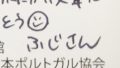 とう☺
館 ふじさん
本ポルトガル協会